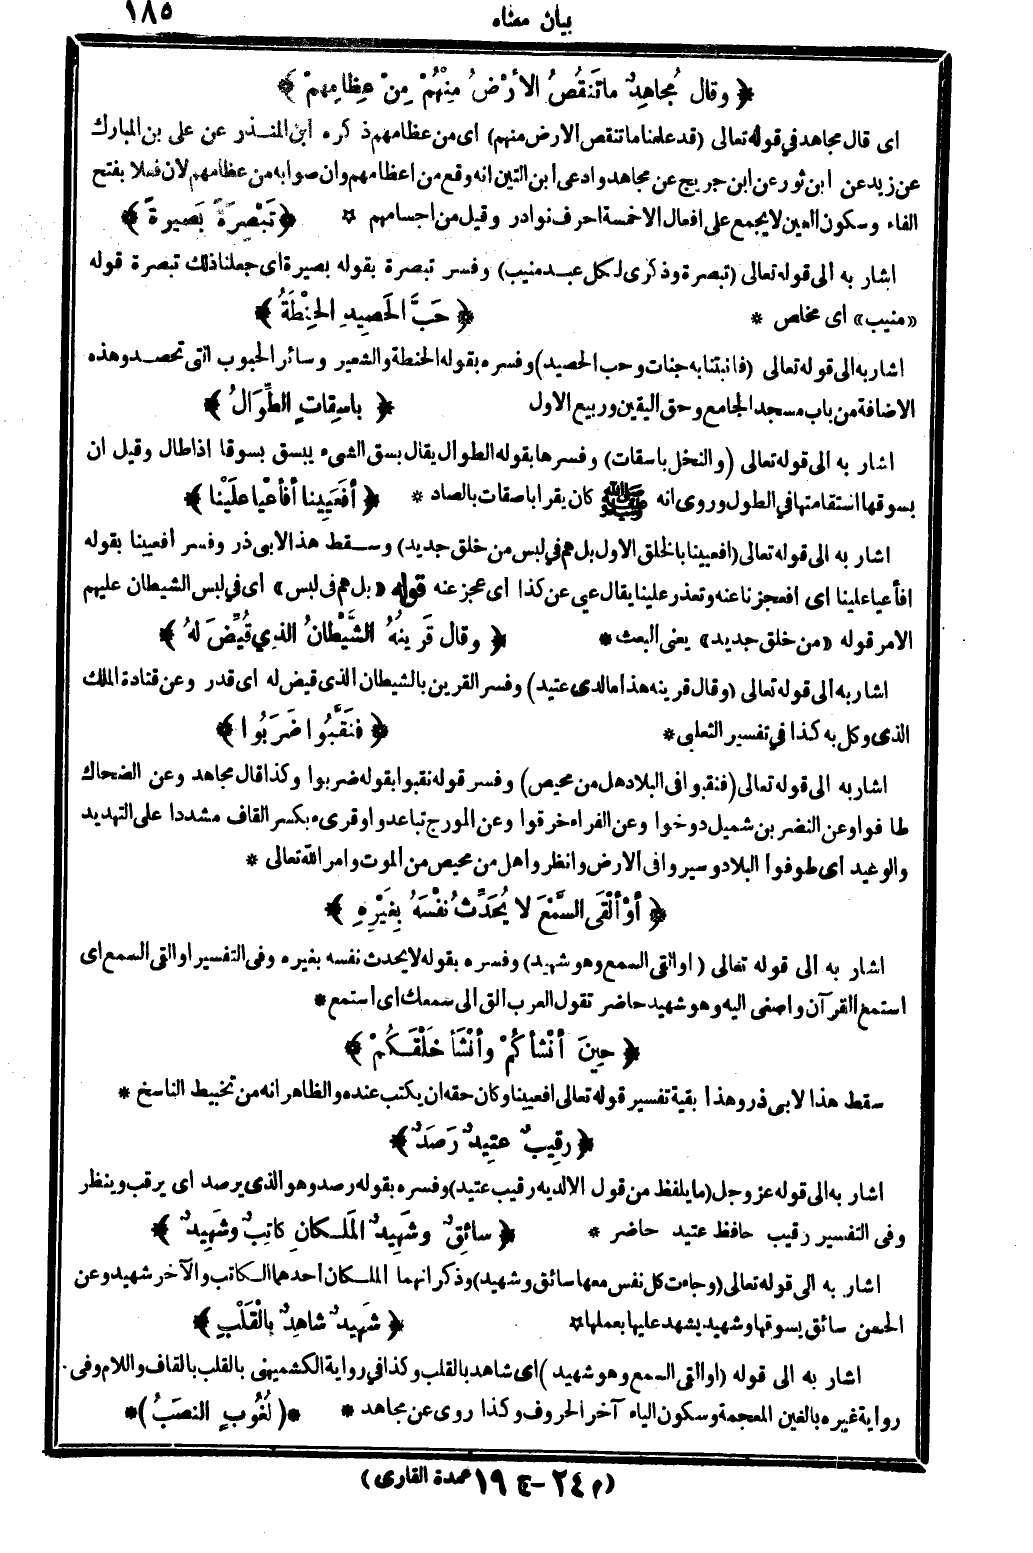 بيان معناه ١٨٥
﴿ وقال مُجاهِدٌ ماتَنقُصُ الأرْضُ مِنْهُمْ مِنْ عِظامِهِمْ ﴾
اى قال مجاهد في قوله تعالى (قد علمنا ما تنقص الارض منهم) اى من عظامهم ذكره ابن المنذر عن على بن المبارك
عن زيد عن ابن ثور عن ابن جريج عن مجاهد وادعى ابن التين انه وقع من اعظامهم وان صوابه من عظامهم لان فعلا بفتح
الفاء وسكون العين لا يجمع على افعال الا خمسة احرف نوادر وقيل من اجسامهم * ﴿ تَبْصِرَةً بَصيرةً ﴾
اشار به الى قوله تعالى (تبصرة وذكرى لكل عبد منيب) وفسر تبصرة بقوله بصيرة اى جعلنا ذلك تبصرة قوله
«منيب» اى مخلص * ﴿ حَبَّ الحَصيدِ الحِنْطَةُ ﴾
اشار به الى قوله تعالى (فانبتنا به جنات وحب الحصيد) وفسره بقوله الحنطة والشعير وسائر الحبوب التى تحصد وهذه
الاضافة من باب مسجد الجامع وحق اليقين وربيع الاول ﴿ باسِقاتٍ الطِّوَالُ ﴾
اشار به الى قوله تعالى (والنخل باسقات) وفسرها بقوله الطوال يقال بسق الشىء يبسق بسوقا اذا طال وقيل ان
بسوقها استقامتها في الطول وروى انه ﷺ كان يقرا باصقات بالصاد * ﴿ أفَعَيِينا أفأعْيا عَلَيْنا ﴾
اشار به الى قوله تعالى (افعيينا بالخلق الاول بل هم في لبس من خلق جديد) وسقط هذا لابى ذر وفسر أفعيينا بقوله
افأعيا علينا اى افعجزنا عنه وتعذر علينا يقال عيي عن كذا اى عجز عنه قوله «بل هم فى لبس» اى في لبس الشيطان عليهم
الامر قوله «من خلق جديد» يعنى البعث * ﴿ وقال قَرينُهُ الشَّيْطانُ الذِي قُيِّضَ لهُ ﴾
اشار به الى قوله تعالى (وقال قرينه هذا مالدى عتيد) وفسر القرين بالشيطان الذى قيض له اى قدر وعن قتادة الملك
الذى وكل به كذا في تفسير الثعلبى * ﴿ فنَقَّبُوا ضَرَبُوا ﴾
اشار به الى قوله تعالى (فنقبوا فى البلاد هل من محيص) وفسر قوله نقبوا بقوله ضربوا وكذا قال مجاهد وعن الضحاك
طافوا وعن النضر بن شميل دوخوا وعن الفراء خرقوا وعن المورج تباعدوا وقرىء بكسر القاف مشددا على التهديد
والوعيد اى طوفوا البلاد وسيروا فى الارض وانظروا هل من محيص من الموت وامر الله تعالى *
﴿ أوْ ألْقَى السَّمْعَ لا يُحَدِّثُ نفْسَهُ بِغَيْرِهِ ﴾
اشار به الى قوله تعالى (او القى السمع وهو شهيد) وفسره بقوله لا يحدث نفسه بغيره وفى التفسير او القى السمع اى
استمع القرآن واصغى اليه وهو شهيد حاضر تقول العرب الق الى سمعك اى استمع *
﴿ حِينَ أنْشأكُمْ وأنْشَأ خَلْقَكُمْ ﴾
سقط هذا لابى ذر وهذا بقية تفسير قوله تعالى افعيينا وكان حقه ان يكتب عنده والظاهر انه من تخبيط الناسخ *
﴿ رقِيبٌ عتِيدٌ رَصَدٌ ﴾
اشار به الى قوله عز وجل (ما يلفظ من قول الا لديه رقيب عتيد) وفسره بقوله رصد وهو الذى يرصد اى يرقب وينظر
وفى التفسير رقيب حافظ عتيد حاضر * ﴿ سائِقٌ وشَهِيدٌ المَلَكانِ كاتِبٌ وشَهِيدٌ ﴾
اشار به الى قوله تعالى (وجاءت كل نفس معها سائق وشهيد) وذكر انهما الملكان احدهما الكاتب والآخر شهيد وعن
الحسن سائق يسوقها وشهيد يشهد عليها بعملها * ﴿ شَهِيدٌ شاهِدٌ بِالْقَلْبِ ﴾
اشار به الى قوله (او القى السمع وهو شهيد) اى شاهد بالقلب وكذا في رواية الكشميهنى بالقلب بالقاف واللام وفى
رواية غيره بالغين المعجمة وسكون الياء آخر الحروف وكذا روى عن مجاهد * *( لُغُوبٍ النصَبُ )*
(م ٢٤ - ج ١٩ عمدة القارى)